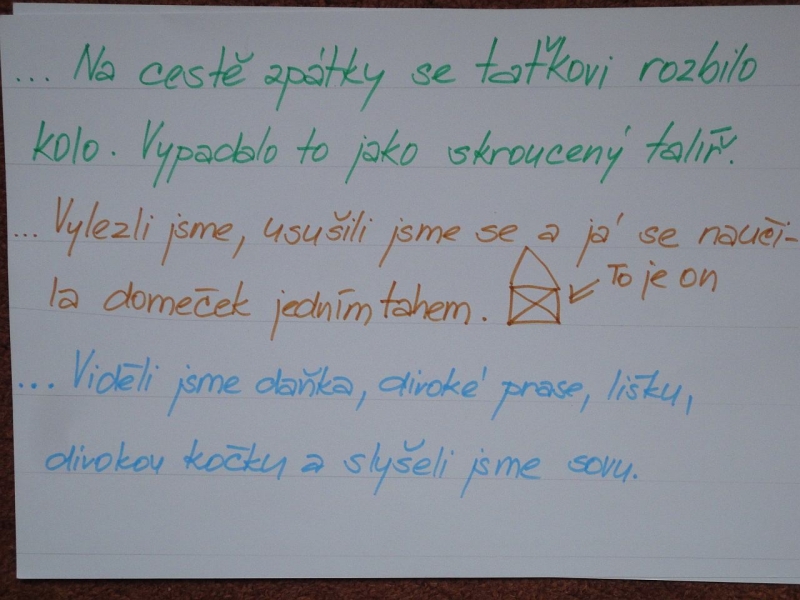 ... Na cestě zpátky se taťkovi rozbilo
kolo. Vypadalo to jako skroucený talíř.
... Vylezli jsme, usušili jsme se a já se nauči-
la domeček jedním tahem.
To je on
... Viděli jsme daňka, divoké prase, lišku,
divokou kočku a slyšeli jsme sovu.